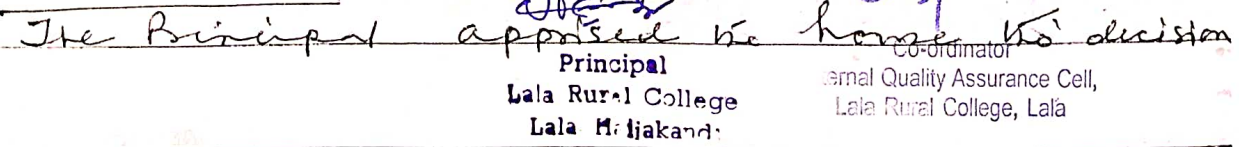 The Principal apprised the house the decision
Principal
Lala Rural College
Lala
Co-ordinator
ernal Quality Assurance Cell,
Lala Rural College, Lala